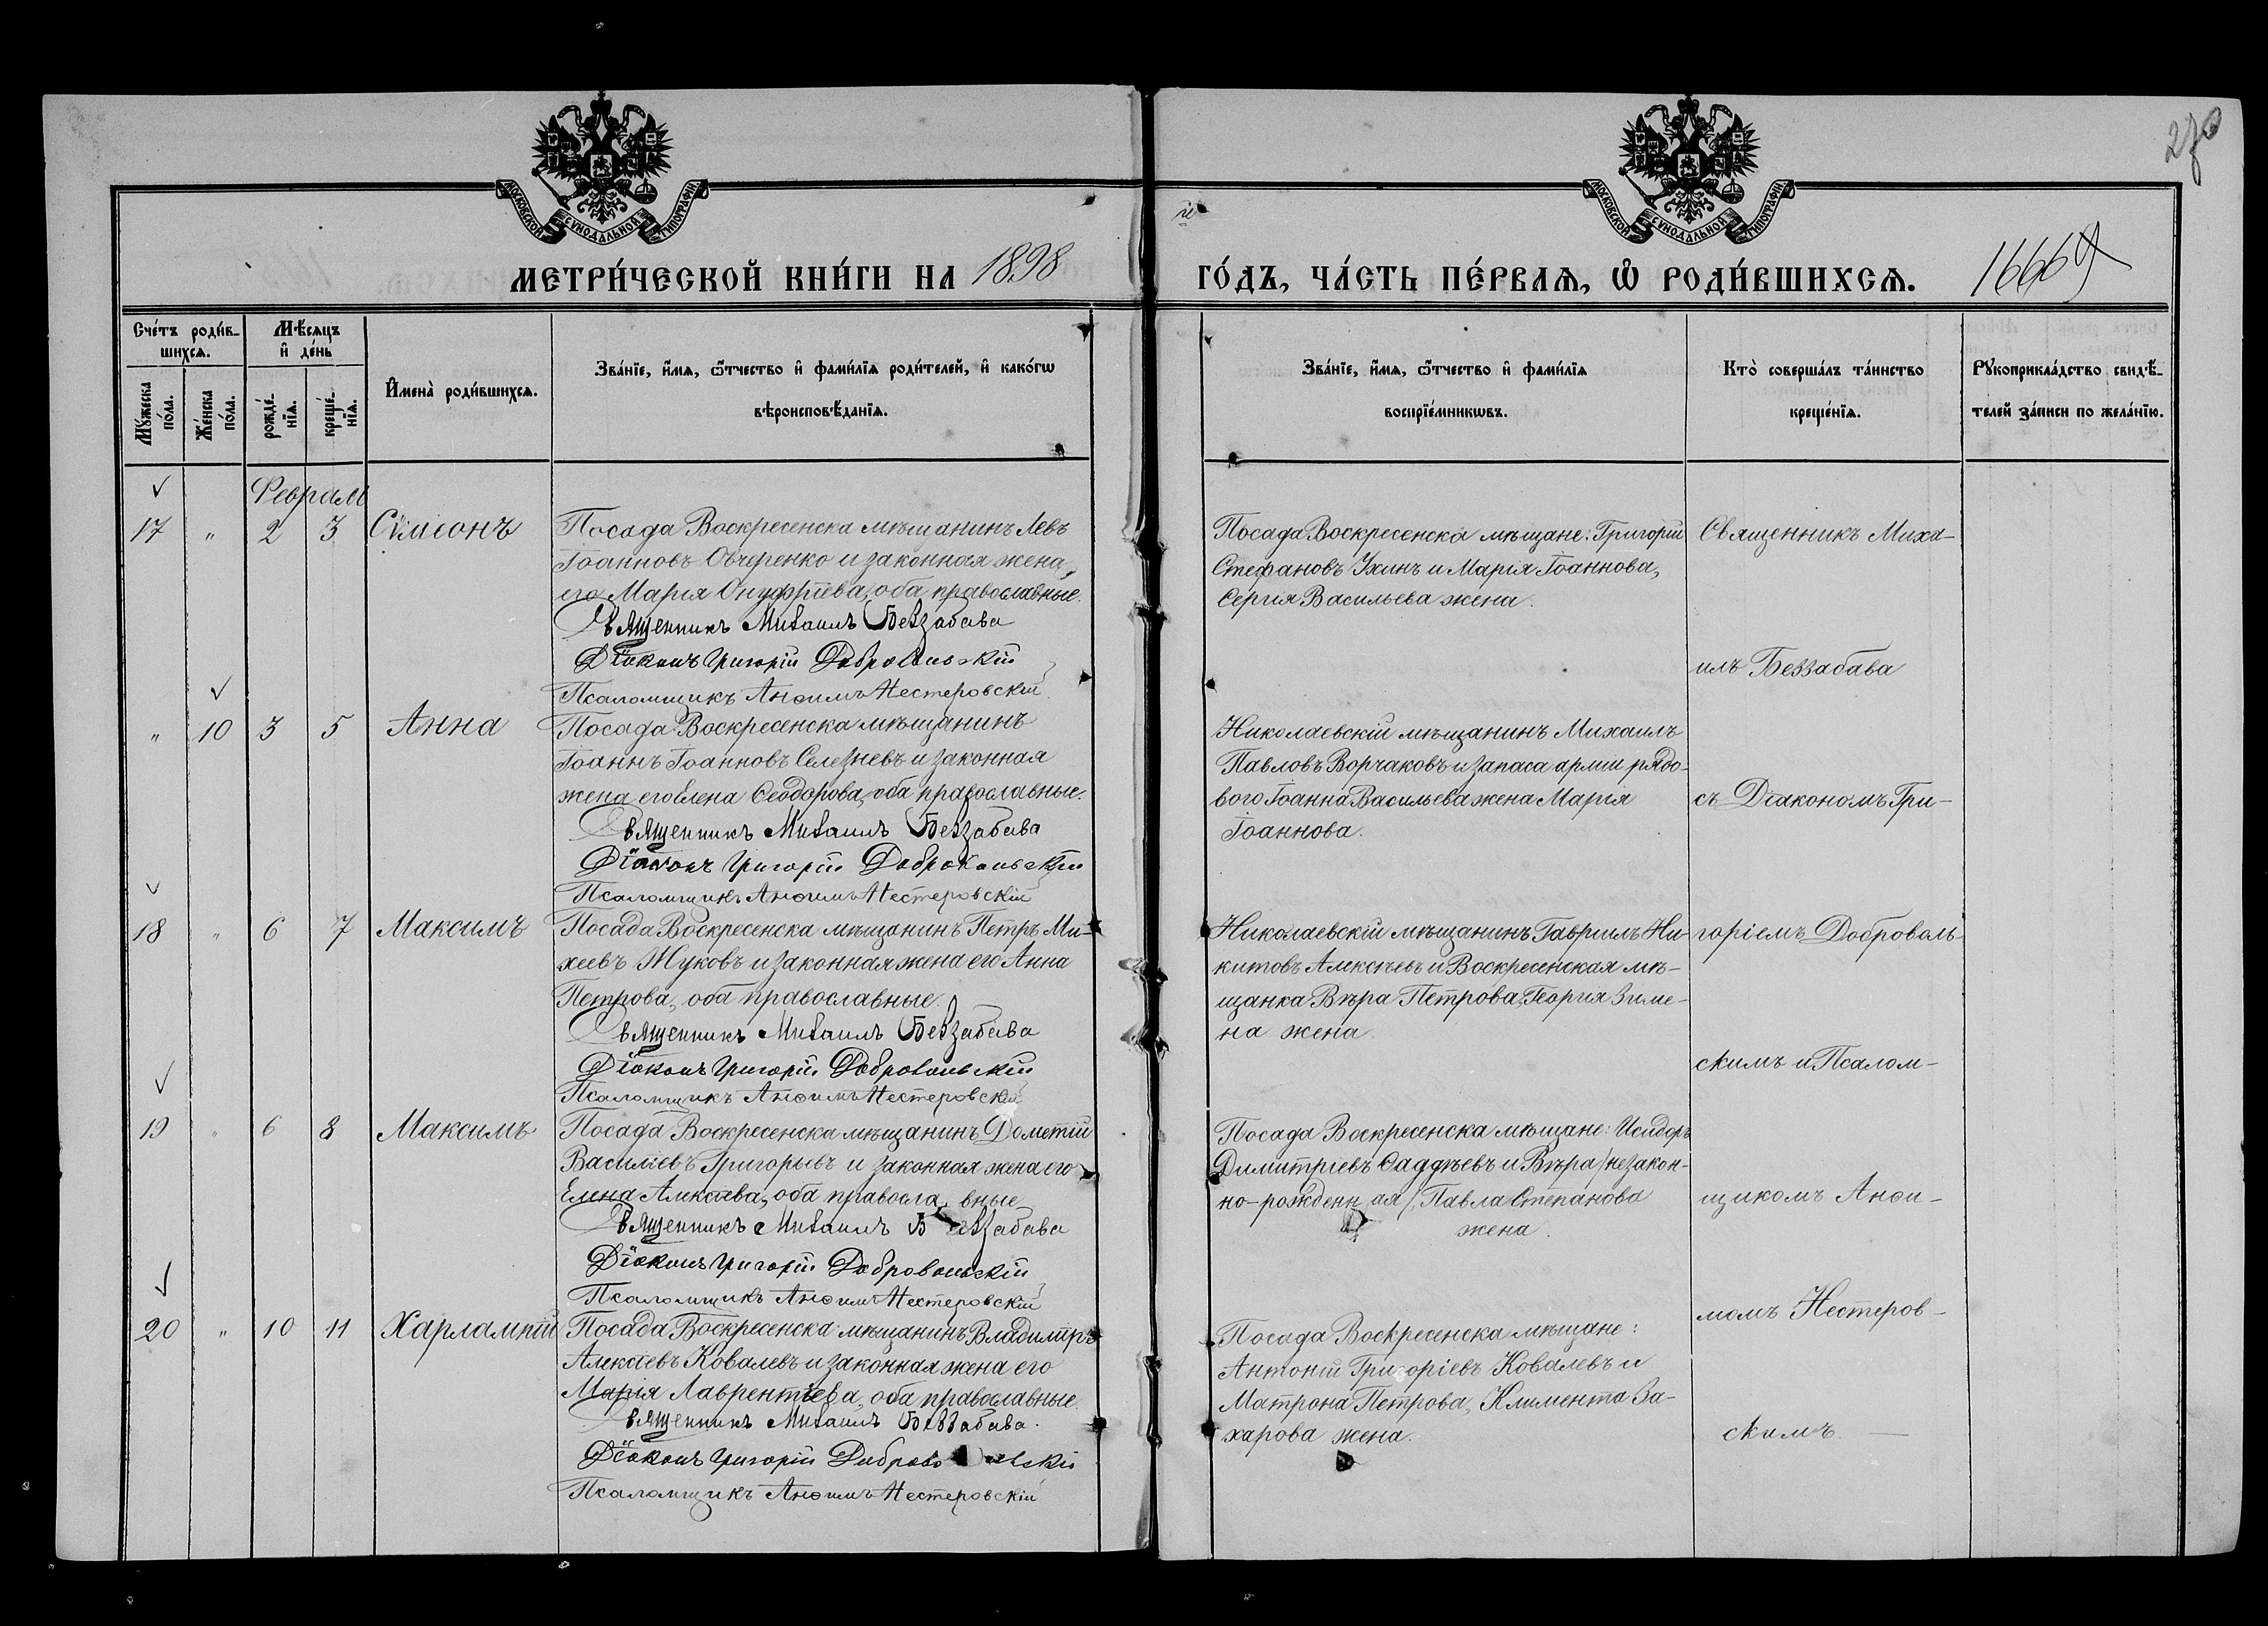 270
МОСКОВСКОЙ СѴНОДАЛЬНОЙ ТИПОГРАФІИ
МОСКОВСКОЙ СѴНОДАЛЬНОЙ ТИПОГРАФІИ
МЕТРИ́ЧЕСКОЙ КНИ́ГИ НА 1898
ГО́ДЪ, ЧА́СТЬ ПЕ́РВАѦ, Ѡ҆ РОДИ́ВШИХСѦ.
Сче́тъ роди́в-
шихсѧ.
Мꙋ́жеска по́ла.
Же́нска по́ла.
Мѣ́сѧцъ
и҆ де́нь
рожде́-нїѧ.
креще́-нїѧ.
И҆мена̀ роди́вшихсѧ.
Зва́нїе, и҆́мѧ, ѻ҆́тчество и҆ фами́лїѧ роди́телей, и҆ како́гѡ
вѣроисповѣ́данїѧ.
Зва́нїе, и҆́мѧ, ѻ҆́тчество и҆ фами́лїѧ
воспрїе́мникѡвъ.
Кто̀ соверша́лъ та́инство
креще́нїѧ.
Рꙋкоприкла́дство свидѣ́-
телей за́писи по жела́нїю.
Февраль
17 " 2 3 Сѵмеонъ
Посада Воскресенска мѣщанинъ Левъ
Іоанновъ Овчеренко и законная жена
его Марія Онуфріева, оба православные.
Священникъ Михаилъ Беззабава
Діаконъ Григорій Добровольскій
Псаломщикъ Анѳимъ Нестеровскій
Посада Воскресенска мѣщане: Григорій
Стефановъ Ухинъ и Марія Іоаннова,
Сергія Васильева жена.
" 10 3 5 Анна
Посада Воскресенска мѣщанинъ
Іоаннъ Іоанновъ Селезневъ и законная
жена его Елена Ѳеодорова, оба православные.
Священникъ Михаилъ Беззабава
Діаконъ Григорій Добровольскій
Псаломщикъ Анѳимъ Нестеровскій
Николаевскій мѣщанинъ Михаилъ
Павловъ Ворчаковъ и запаса арміи рядо-
вого Іоанна Васильева жена Марія
Іоаннова.
18 " 6 7 Максимъ
Посада Воскресенска мѣщанинъ Петръ Ми-
хеевъ Жуковъ и законная жена его Анна
Петрова, оба православные.
Священникъ Михаилъ Беззабава
Діаконъ Григорій Добровольскій
Псаломщикъ Анѳимъ Нестеровскій
Николаевскій мѣщанинъ Гавріилъ Ни-
китовъ Алексѣевъ и Воскресенская мѣ-
щанка Вѣра Петрова, Георгія Зиме-
на жена.
19 " 6 8 Максимъ
Посада Воскресенска мѣщанинъ Дометій
Василіевъ Григорьевъ и законная жена его
Елена Алексіева, оба православные
Священникъ Михаилъ Беззабава
Діаконъ Григорій Добровольскій
Псаломщикъ Анѳимъ Нестеровскій
Посада Воскресенска мѣщане: Исидоръ
Димитріевъ Саддѣевъ и Вѣра /незакон-
но-рожденная/, Павла Степанова
жена.
20 " 10 11 Харлампій
Посада Воскресенска мѣщанинъ Владиміръ
Алексіевъ Ковалевъ и законная жена его
Марія Лаврентіева, оба православные.
Священникъ Михаилъ Беззабава.
Діаконъ Григорій Добровольскій
Псаломщикъ Анѳимъ Нестеровскій
Посада Воскресенска мѣщане:
Антоній Григоріевъ Ковалевъ и
Матрона Петрова, Климента За-
харова жена.
Священникъ Миха-
илъ Беззабава
съ Діакономъ Гри-
горіемъ Доброволь-
скимъ и Псалом-
щикомъ Анѳи-
момъ Нестеров-
скимъ.